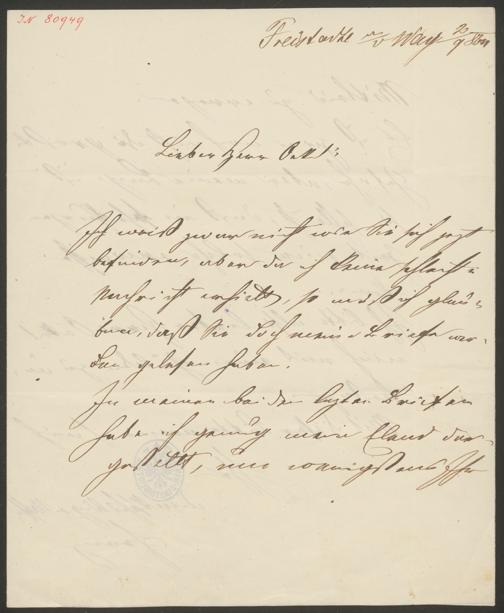 IN 80949
Freistadtl a/d Waag 2/9 860
Lieber Herr Oettl!
Ich weiß zwar nicht wie Sie sich jetzt
befinden, aber da ich keine schlechte
Nachricht erhielt, so muß ich glau-
ben, daß Sie doch meine Briefe wer-
den gelesen haben.
In meinen beiden letzten Briefen
habe ich genug mein Elend dar-
gestellt, um wenigstens Ihr